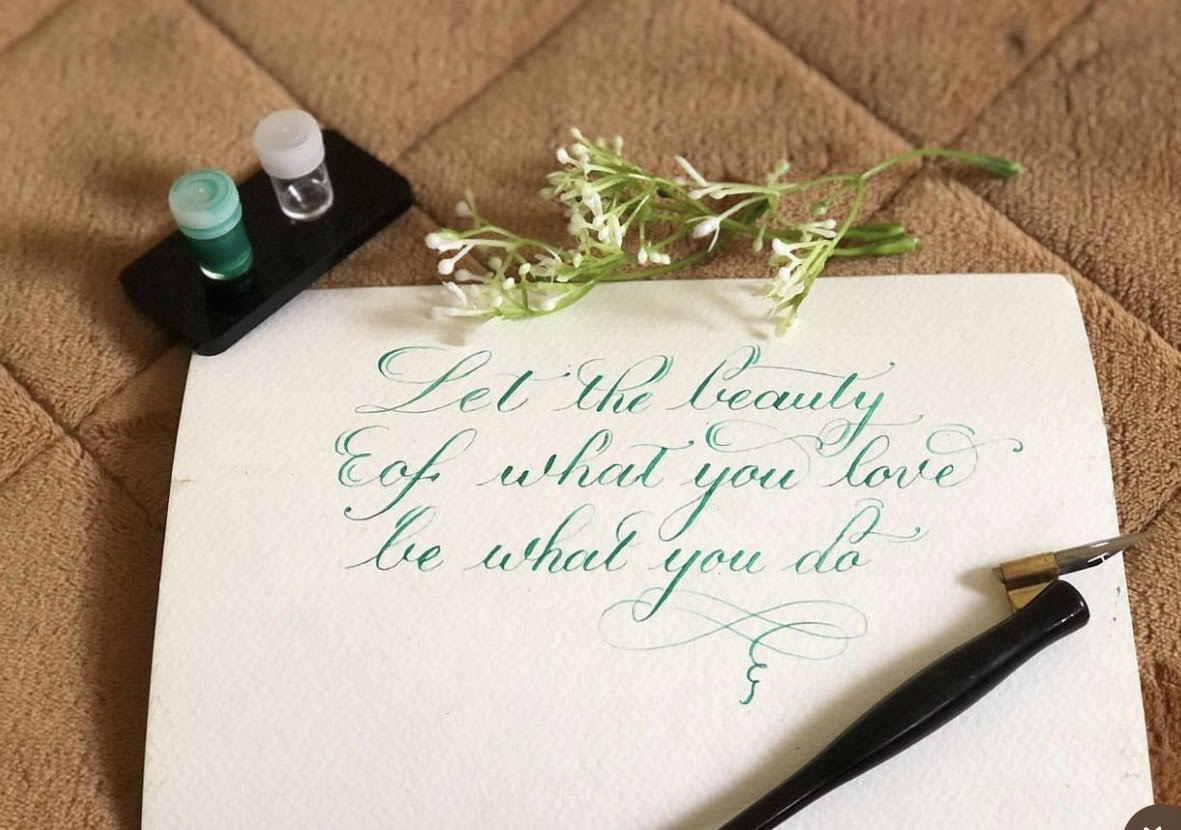 Let the beauty
of what you love
be what you do